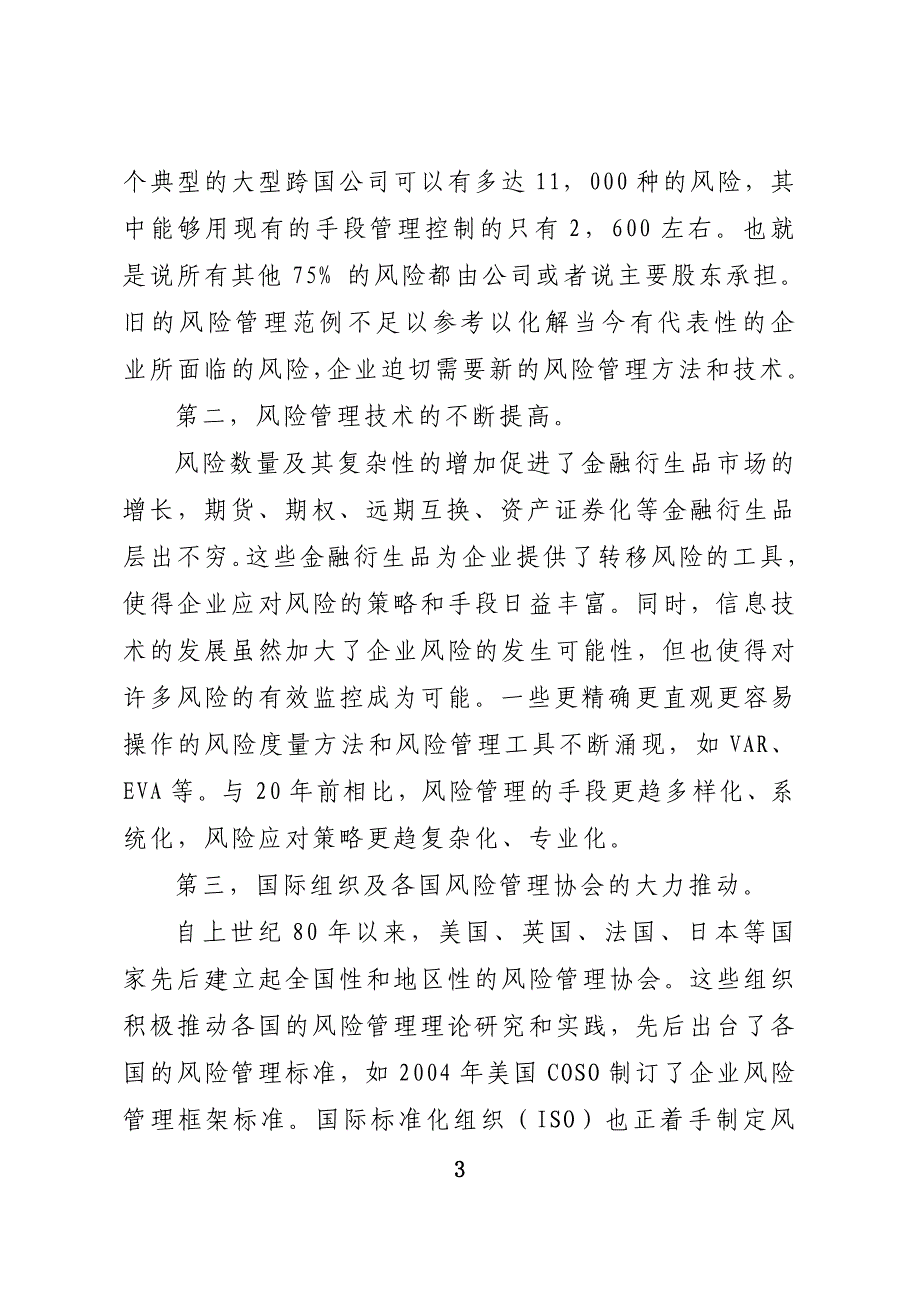 个典型的大型跨国公司可以有多达 11，000 种的风险，其
中能够用现有的手段管理控制的只有 2，600 左右。也就
是说所有其他 75% 的风险都由公司或者说主要股东承担。
旧的风险管理范例不足以参考以化解当今有代表性的企
业所面临的风险，企业迫切需要新的风险管理方法和技术。
第二，风险管理技术的不断提高。
风险数量及其复杂性的增加促进了金融衍生品市场的
增长，期货、期权、远期互换、资产证券化等金融衍生品
层出不穷。这些金融衍生品为企业提供了转移风险的工具，
使得企业应对风险的策略和手段日益丰富。同时，信息技
术的发展虽然加大了企业风险的发生可能性，但也使得对
许多风险的有效监控成为可能。一些更精确更直观更容易
操作的风险度量方法和风险管理工具不断涌现，如 VAR、
EVA 等。与 20 年前相比，风险管理的手段更趋多样化、系
统化，风险应对策略更趋复杂化、专业化。
第三，国际组织及各国风险管理协会的大力推动。
自上世纪 80 年以来，美国、英国、法国、日本等国
家先后建立起全国性和地区性的风险管理协会。这些组织
积极推动各国的风险管理理论研究和实践，先后出台了各
国的风险管理标准，如 2004 年美国 COSO 制订了企业风险
管理框架标准。国际标准化组织（ISO）也正着手制定风
3